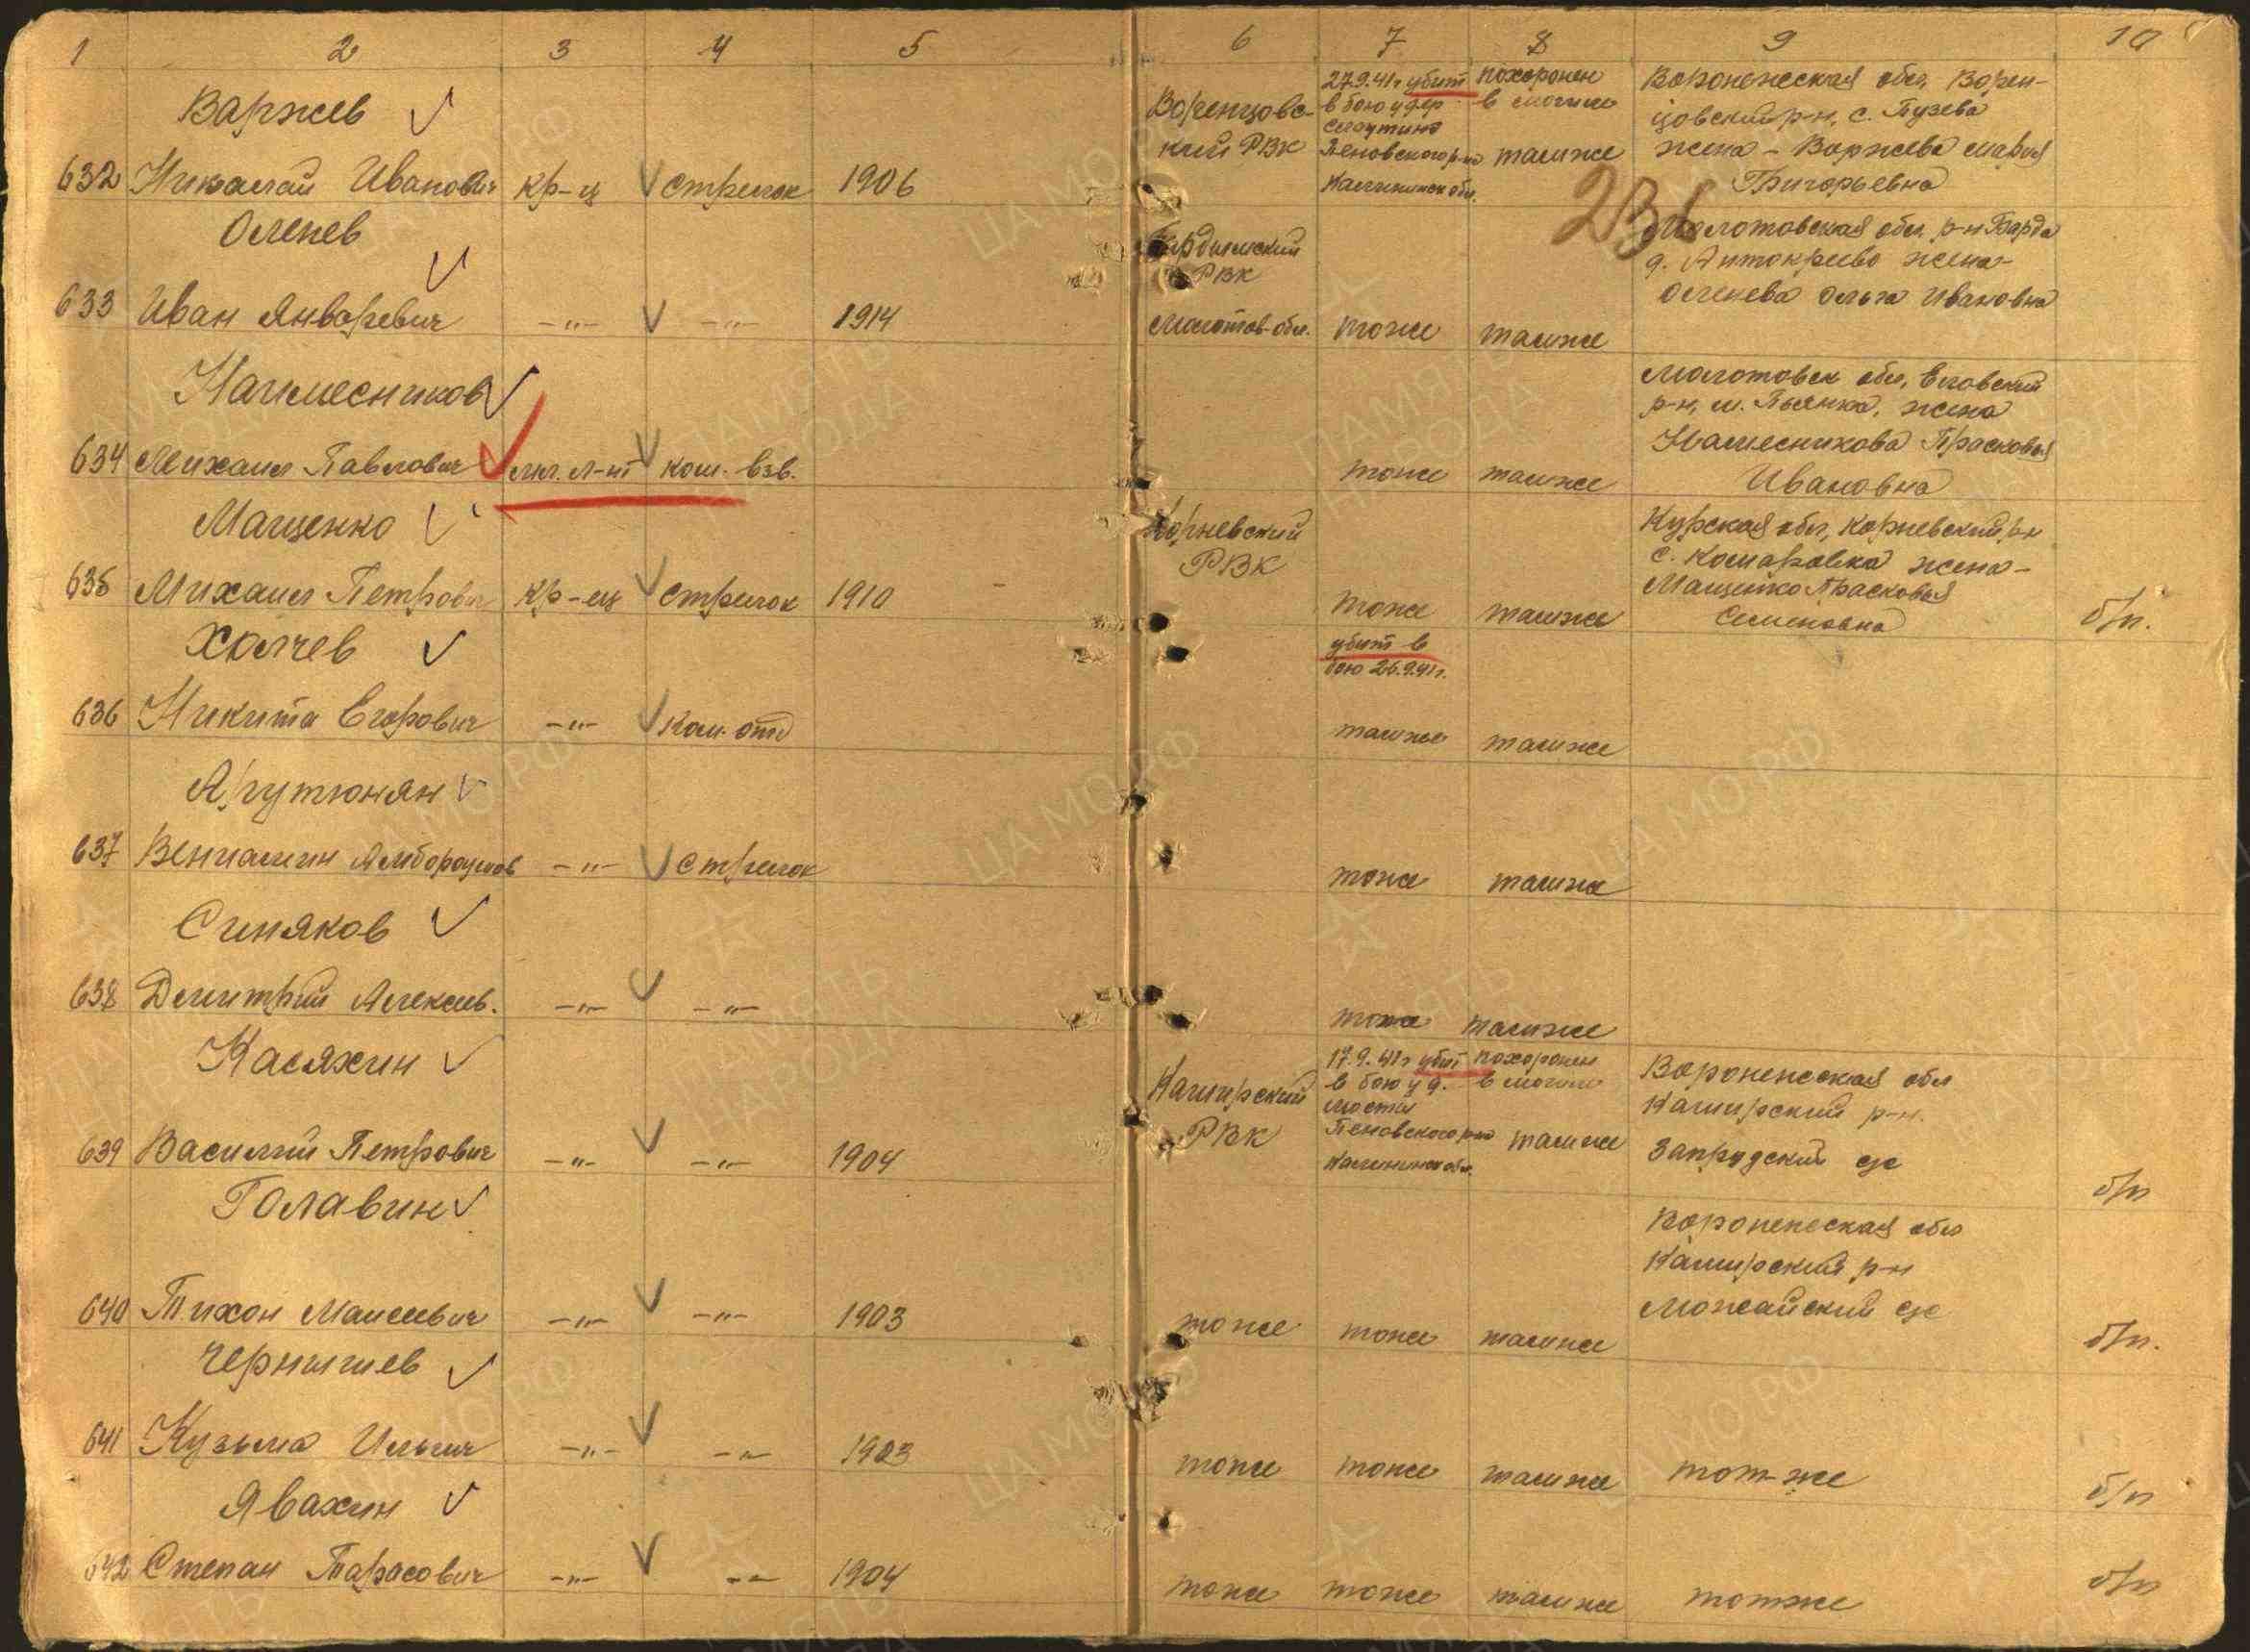 1 2 3 4 5 6 7 8 9 10
Варжев
632 Николай Иванович кр-ц стрелок 1906
Воренцовс-
кий РВК
27.9.41г убит
в бою у дер
Пеновского р-на
Калининск обл.
похоронен
в могиле
там же
Воронежская обл, Ворен-
цовский р-н, с. Пузева
жена - Воржева Мария
Григорьевна
231
Оленев
633 Иван Январевич -"- -"- 1914
Бардымский
РВК
Молотов. обл. тоже там же
Молотовская обл. р-н Барда
д. Антокреево жена-
Оленева Ольга Ивановна
Наимесников
634 Михаил Павлович мл. л-нт ком. взв.
тоже там же
Молотовск обл, Еловский
р-н, м. Пьянка, жена
Прасковья
Ивановна
Мащенко
635 Михаил Петрович кр-ец стрелок 1910
Корневский
РВК
тоже там же
Курская обл, Корневский р-н
с. Комаровка жена-
Мащенко Прасковья
Семеновна
б/п.
Холчев
636 Никита Егорович -"- Ком. отд
убит в
бою 26.9.41г.
там же там же
Арутюнян
637 Вениамин -"- стрелок
тоже там же
Синяков
638 Дмитрий Алексеев. -"- -"-
тоже там же
Касяхин
639 Василий Петрович -"- -"- 1904
Каширский
РВК
17.9.41г убит
в бою у д.
мосты
Пеновского р-на
Калининск обл.
похоронен
в могиле
там же
Воронежская обл
Каширский р-н.
Запрудский с/с
б/п
Голавин
640 Тихон Маисеевич -"- -"- 1903
тоже тоже там же
Воронежская обл
Каширский р-н
Можайский с/с
б/п.
Чернышев
641 Кузьма Ильич -"- -"- 1903
тоже тоже там же тот-же б/п
Явахин
642 Степан Тарасович -"- -"- 1904
тоже тоже там же тот же б/п
ЦА МО РФ
ПАМЯТЬ
НАРОДА